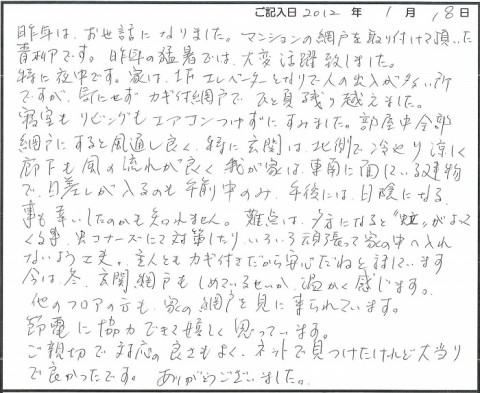 ご記入日 2012 年 1 月 18 日
昨年は、お世話になりました。マンションの網戸を取り付けて頂いた
青柳です。昨年の猛暑では、大変活躍致しました。
特に夜中です。家は、1F エレベーターとなりで人の出入が多い所
ですが、気にせず カギ付網戸で ひと夏残り越えました。
寝室も リビングも エアコンつけずに すみました。部屋中全部
網戸にすると風通し良く、特に玄関は、北側で冷やり涼しく
廊下も風の流れが良く 我が家は、東南に面している建物
で、日差しが入るのも午前中のみ、午後には、日陰になる、
事も幸いしたのかも知れません。難点は、夕方になると"蚊"がよって
くる事、虫コナーズにて対策したり いろいろ頑張って家の中へ入れ
ないよう工夫。主人ともカギ付きだから安心だねと話しています
今は、冬、玄関網戸もしめているせいか、温かく感じます。
他のフロアの方も、家の網戸を見に来られています。
節電に協力できて嬉しく思っています。
ご親切で対応の良さもよく、ネットで見つけたけれど大当り
で良かったです。 ありがとうございました。